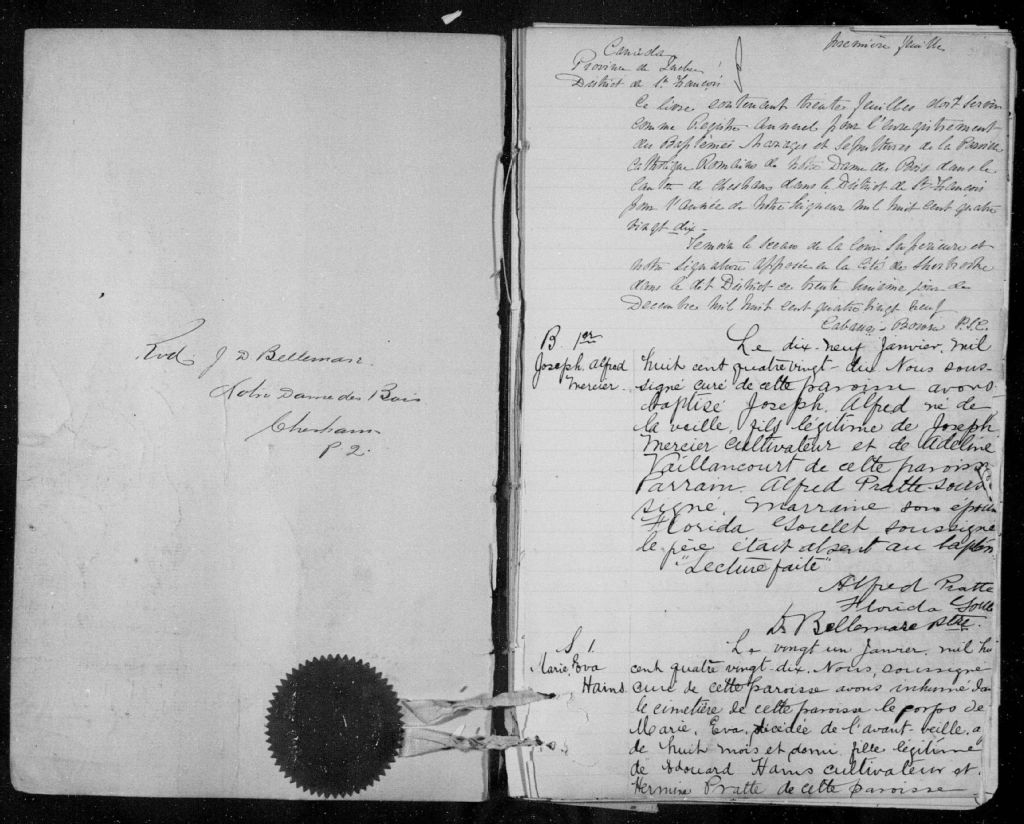 Rvd. J D Bellemare
Notre Dame des Bois
Chesham
P. Q.
Première feuille
Canada
Province de Québec
District de St François
Ce livre contenant trente feuilles doit servir
comme Registre annuel pour l'enregistrement
des Baptêmes Mariages et Sepultures de la Paroisse
Catholique Romaine de Notre Dame des Bois dans le
Canton de Chesham dans le District de St François
pour l'année de Notre Seigneur mil huit cent quatre
vingt dix -
Temoin le Sceau de la Cour Supérieure et
notre signature apposée en la Cité de Sherbrooke
dans le dit District ce trente unième jour de
Decembre mil huit cent quatre vingt neuf
Cabana & Bowen P.S.C.
B. 1er
Joseph, Alfred
Mercier
Le dix-neuf Janvier, mil
huit cent quatre vingt-dix Nous sous-
signé curé de cette paroisse avons
baptisé Joseph, Alfred né de
la veille, fils légitime de Joseph
Mercier cultivateur et de Adeline
Vaillancourt de cette paroisse
Parrain, Alfred Pratte sous-
signé, marraine son épouse
Florida Goulet soussignée
le père était absent au baptême
"Lecture faite"
Alfred Pratte
Florida Goule
D. Bellemare ptre.
S 1.
Marie, Eva
Hains
Le vingt un Janvier, mil hui
cent quatre vingt-dix. Nous, soussigné
curé de cette paroisse avons inhumé dan
le cimetière de cette paroisse le corps de
Marie, Eva, décédée de l'avant-veille, a
de huit mois et demi, fille légitime
de Edouard Hains cultivateur et
Hermine Pratte de cette paroisse